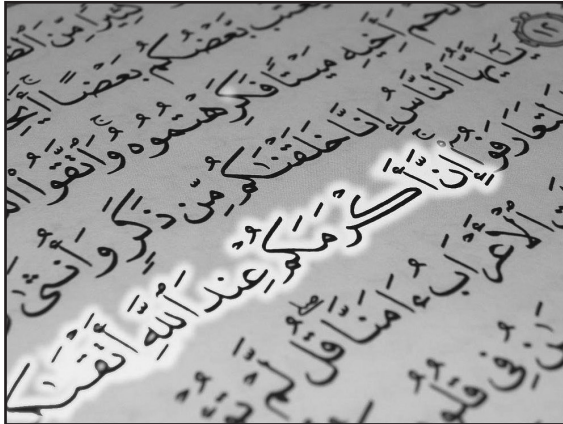 كَثِيرًا مِّنَ
يَغْتَب بَّعْضُكُم بَعْضًا
لَحْمَ أَخِيهِ مَيْتًا فَكَرِهْتُمُوهُ وَٱتَّقُوا۟
١٢ يَٰٓأَيُّهَا ٱلنَّاسُ إِنَّا خَلَقْنَٰكُم مِّن ذَكَرٍ وَأُنثَىٰ
لِتَعَارَفُوٓا۟ ۚ إِنَّ أَكْرَمَكُمْ عِندَ ٱللَّهِ أَتْقَىٰك
ٱلْأَعْرَابُ ءَامَنَّا ۖ قُل لَّمْ
فِى